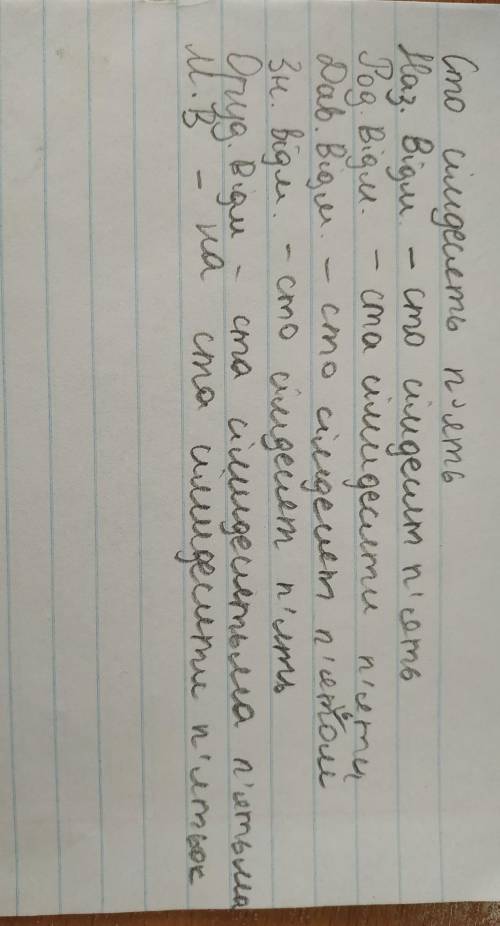 Сто сімдесять п'ять
Наз. Відм. - сто сімдесят п'ять
Род. Відм. - ста сімидесяти п'яти
Дав. Відм. - сто сімдесят п'ятьом
Зн. відм. - сто сімдесят п'ять
Оруд. Відм - ста сімидесятьма п'ятьма
М. В - на ста сімидесяти п'ятьох